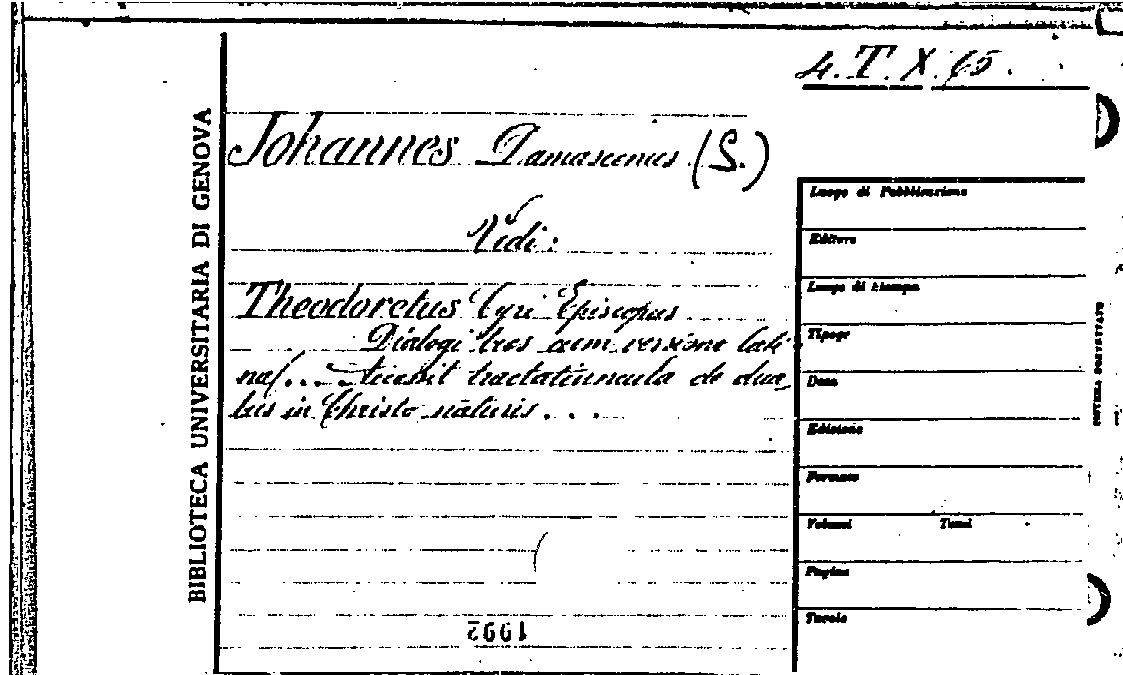 4. T. X. 65.
BIBLIOTECA UNIVERSITARIA DI GENOVA
Johannes Damascenus (S.)
Vedi:
Theodoretus Cyri Episcopus
Dialogi tres cum versione lati
na(... tractatiuncula de dua_
bus in Christo naturis...
1992
Luogo di Pubblicazione
Editore
Luogo di stampa
Tipogr
Data
Edizione
Formato
Volumi Tomi
Pagine
Tavole